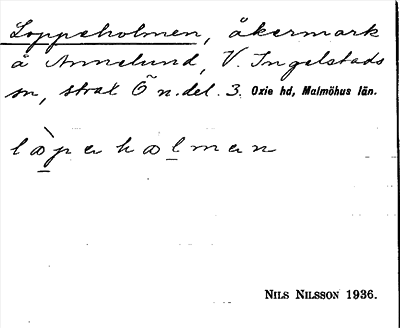 Loppeholmen, åkermark
å Annelund, V. Ingelstads
sn, strax Ö n. del. 3. Oxie hd, Malmöhus län.
NILS NILSSON 1936.